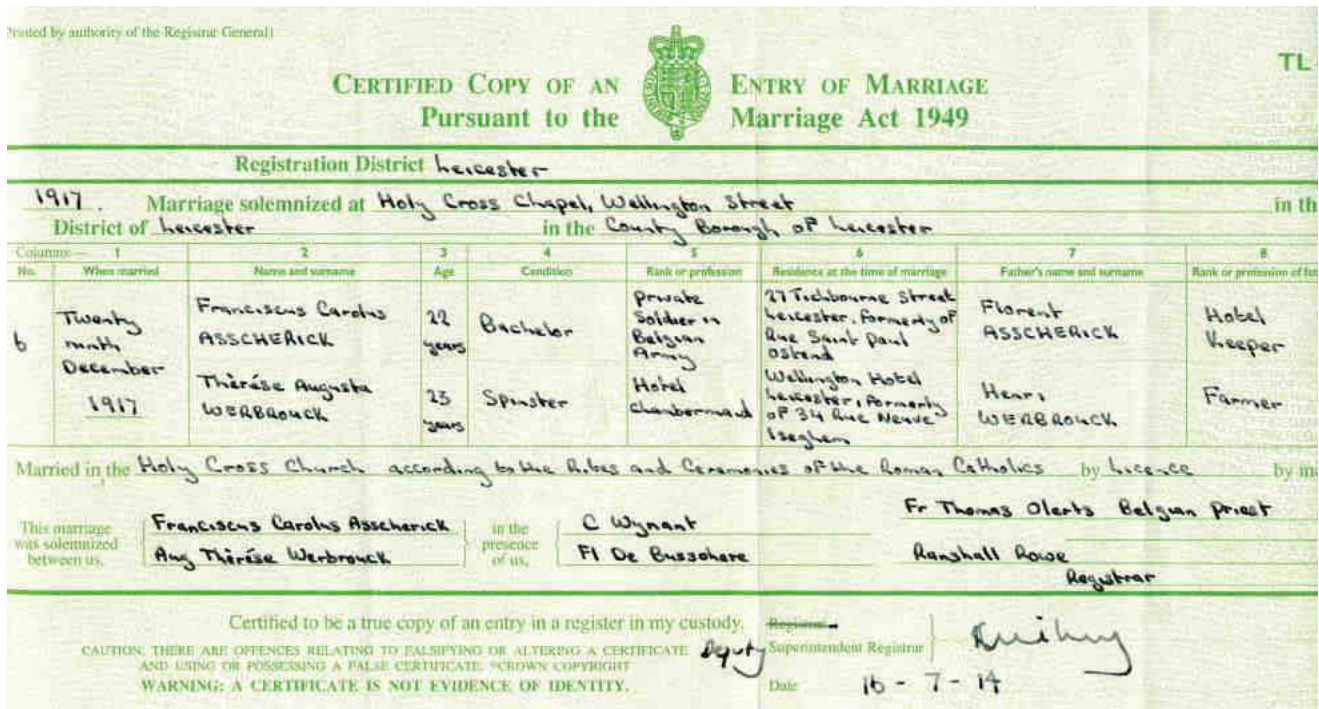 Printed by authority of the Registrar General)
TL
CERTIFIED COPY OF AN ENTRY OF MARRIAGE
Pursuant to the Marriage Act 1949
Registration District Leicester
1917. Marriage solemnized at Holy Cross Chapel, Wellington Street in th
District of Leicester in the County Borough of Leicester
Columns:— 1 2 3 4 5 6 7 8
No. When married Name and surname Age Condition Rank or profession Residence at the time of marriage Father's name and surname Rank or profession of fat
6 Twenty ninth December 1917
Franciscus Carolus ASSCHERICK
22 years
Bachelor
Private Soldier in Belgian Army
27 Tichbourne Street Leicester, formerly of Rue Saint Paul Ostend
Florent ASSCHERICK
Hotel Keeper
Thèrése Augusta WERBROUCK
23 years
Spinster
Hotel Chambermaid
Wellington Hotel Leicester, formerly of 34 Rue Neuve Iseghem
Henri WERBROUCK
Farmer
Married in the Holy Cross Church according to the Rites and Ceremonies of the Roman Catholics by Licence by me
This marriage was solemnized between us,
Franciscus Carolus Asscherick
Aug Thèrése Werbrouck
in the presence of us,
C Wynant
Fl De Bussohere
Fr Thomas Olerts Belgian Priest
Ranshall Rowe
Registrar
Certified to be a true copy of an entry in a register in my custody.
Registrar
Deputy Superintendent Registrar
CAUTION: THERE ARE OFFENCES RELATING TO FALSIFYING OR ALTERING A CERTIFICATE
AND USING OR POSSESSING A FALSE CERTIFICATE. ©CROWN COPYRIGHT
WARNING: A CERTIFICATE IS NOT EVIDENCE OF IDENTITY.
Date 16 - 7 - 14